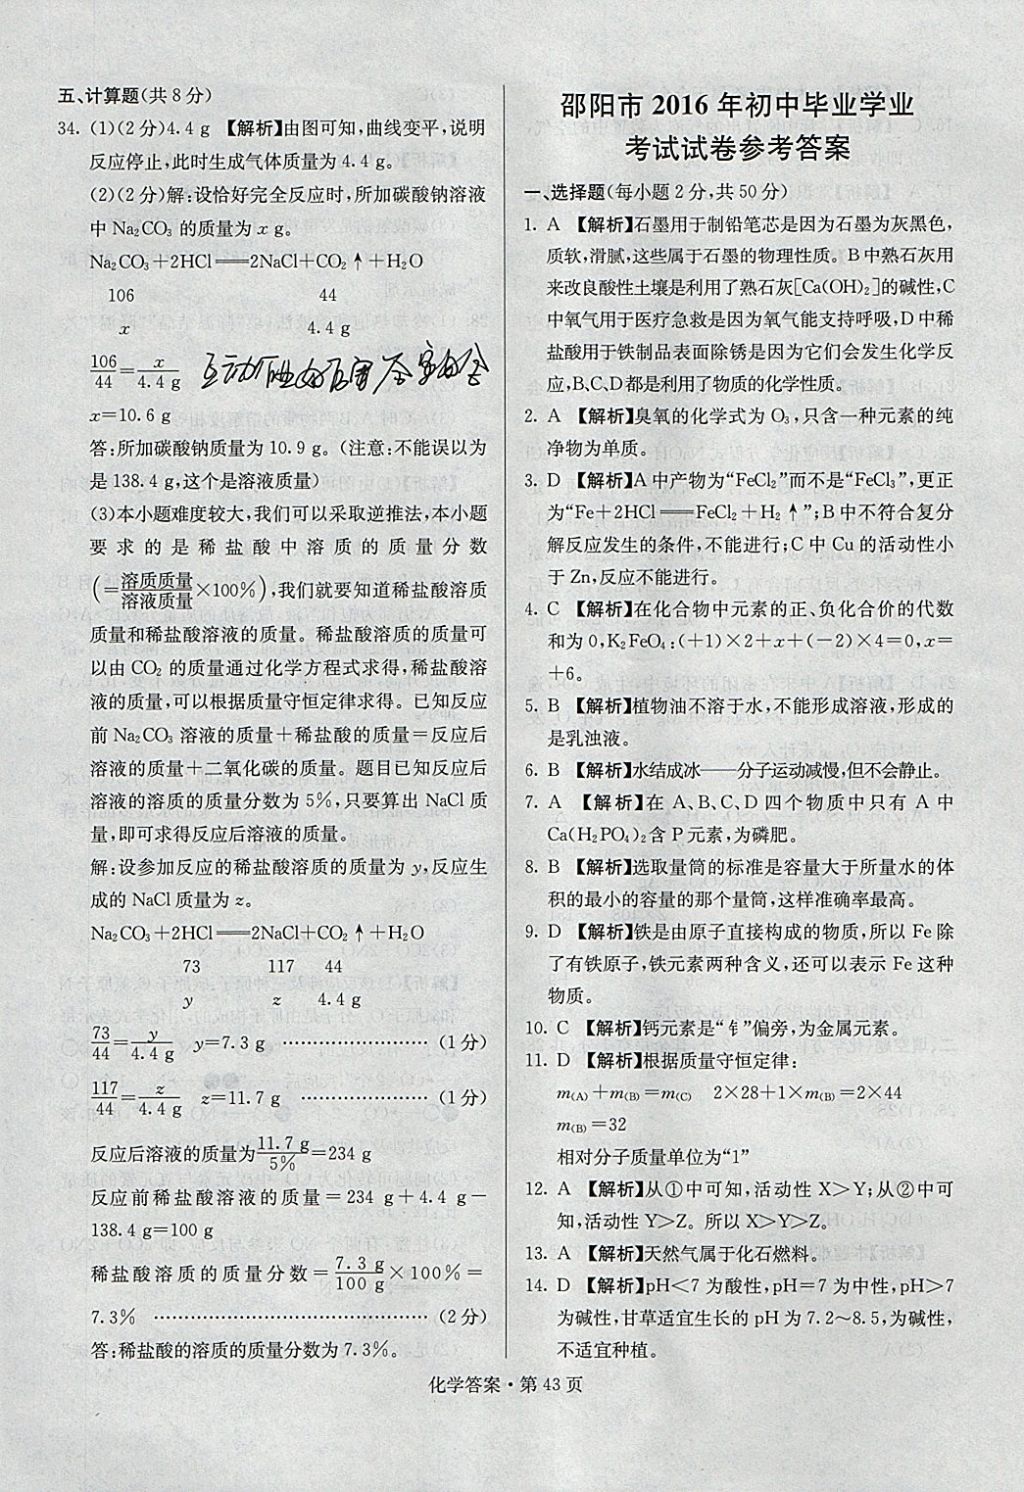 五、计算题(共8分)
34. (1)(2分)4.4 g 【解析】由图可知,曲线变平,说明
反应停止,此时生成气体质量为 4.4 g。
(2)(2分)解:设恰好完全反应时,所加碳酸钠溶液
中 Na₂CO₃ 的质量为 x g。
Na₂CO₃+2HCl══2NaCl+CO₂↑+H₂O
106 44
x 4.4 g
106/44=x/4.4 g
x=10.6 g
答:所加碳酸钠质量为 10.9 g。(注意:不能误以为
是 138.4 g,这个是溶液质量)
(3)本小题难度较大,我们可以采取逆推法,本小题
要求的是稀盐酸中溶质的质量分数
(=溶质质量/溶液质量×100%),我们就要知道稀盐酸溶质
质量和稀盐酸溶液的质量。稀盐酸溶质的质量可
以由 CO₂ 的质量通过化学方程式求得,稀盐酸溶
液的质量,可以根据质量守恒定律求得。已知反应
前 Na₂CO₃ 溶液的质量+稀盐酸的质量=反应后
溶液的质量+二氧化碳的质量。题目已知反应后
溶液的溶质的质量分数为 5%,只要算出 NaCl 质
量,即可求得反应后溶液的质量。
解:设参加反应的稀盐酸溶质的质量为 y,反应生
成的 NaCl 质量为 z。
Na₂CO₃+2HCl══2NaCl+CO₂↑+H₂O
73 117 44
y z 4.4 g
73/44=y/4.4 g y=7.3 g ………………… (1分)
117/44=z/4.4 g z=11.7 g ………………… (1分)
反应后溶液的质量为11.7 g/5%=234 g
反应前稀盐酸溶液的质量=234 g+4.4 g−
138.4 g=100 g
稀盐酸溶质的质量分数=7.3 g/100 g×100%=
7.3% ………………………………… (2分)
答:稀盐酸的溶质的质量分数为 7.3%。
邵阳市 2016 年初中毕业学业
考试试卷参考答案
一、选择题(每小题 2 分,共 50 分)
1. A 【解析】石墨用于制铅笔芯是因为石墨为灰黑色,
质软,滑腻,这些属于石墨的物理性质。B中熟石灰用
来改良酸性土壤是利用了熟石灰[Ca(OH)₂]的碱性,C
中氧气用于医疗急救是因为氧气能支持呼吸,D中稀
盐酸用于铁制品表面除锈是因为它们会发生化学反
应,B、C、D都是利用了物质的化学性质。
2. A 【解析】臭氧的化学式为 O₃,只含一种元素的纯
净物为单质。
3. D 【解析】A中产物为“FeCl₂”而不是“FeCl₃”,更正
为“Fe+2HCl══FeCl₂+H₂↑”;B中不符合复分
解反应发生的条件,不能进行;C 中 Cu 的活动性小
于 Zn,反应不能进行。
4. C 【解析】在化合物中元素的正、负化合价的代数
和为 0,K₂FeO₄:(+1)×2+x+(−2)×4=0,x=
+6。
5. B 【解析】植物油不溶于水,不能形成溶液,形成的
是乳浊液。
6. B 【解析】水结成冰——分子运动减慢,但不会静止。
7. A 【解析】在 A、B、C、D 四个物质中只有 A 中
Ca(H₂PO₄)₂含 P 元素,为磷肥。
8. B 【解析】选取量筒的标准是容量大于所量水的体
积的最小的容量的那个量筒,这样准确率最高。
9. D 【解析】铁是由原子直接构成的物质,所以 Fe 除
了有铁原子,铁元素两种含义,还可以表示 Fe 这种
物质。
10. C 【解析】钙元素是“钅”偏旁,为金属元素。
11. D 【解析】根据质量守恒定律:
m(A)+m(B)=m(C) 2×28+1×m(B)=2×44
m(B)=32
相对分子质量单位为“1”
12. A 【解析】从①中可知,活动性 X>Y;从②中可
知,活动性 Y>Z。所以 X>Y>Z。
13. A 【解析】天然气属于化石燃料。
14. D 【解析】pH<7 为酸性,pH=7 为中性,pH>7
为碱性,甘草适宜生长的 pH 为 7.2~8.5,为碱性,
不适宜种植。
化学答案·第 43 页